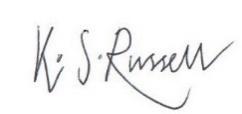 K. S. Russell